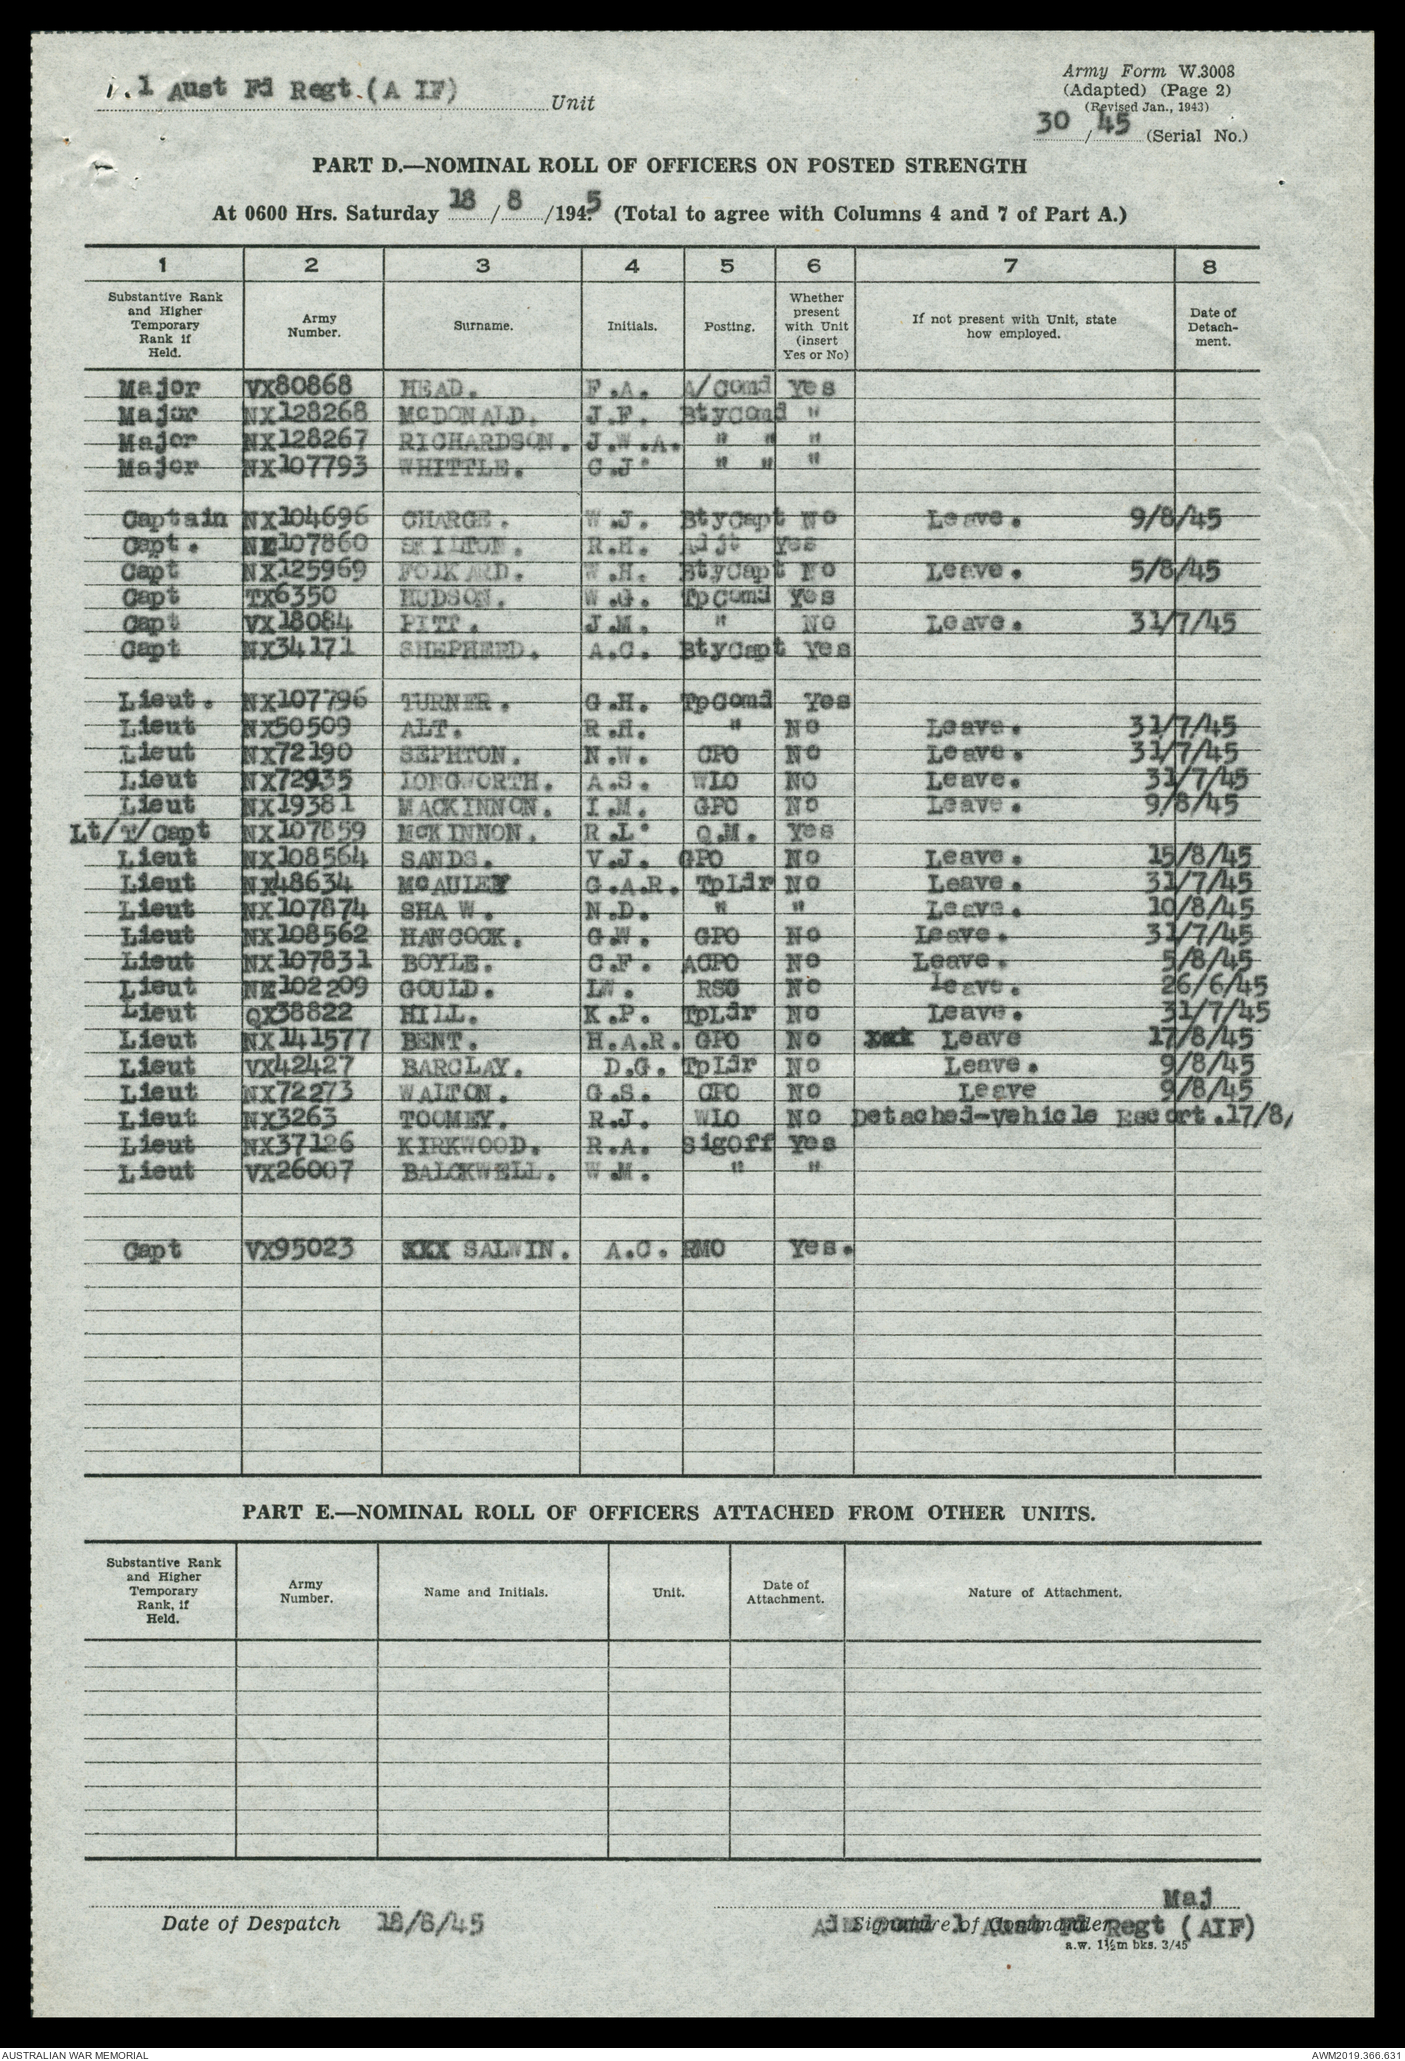 1 Aust Fd Regt.(A IF) Unit
Army Form W.3008
(Adapted) (Page 2)
(Revised Jan., 1943)
30 / 45 (Serial No.)
PART D.—NOMINAL ROLL OF OFFICERS ON POSTED STRENGTH
At 0600 Hrs. Saturday 18 / 8 /1945 (Total to agree with Columns 4 and 7 of Part A.)
1 2 3 4 5 6 7 8
Substantive Rank and Higher Temporary Rank if Held. Army Number. Surname. Initials. Posting. Whether present with Unit (insert Yes or No) If not present with Unit, state how employed. Date of Detach-ment.
Major VX80868 HEAD. F.A. A/Comd Yes
Major NX128268 McDONALD. J.F. BtyComd "
Major NX128267 RICHARDSON. J.W.A. " " "
Major NX107793 WHITTLE. C.J. " " "
Captain NX104696 CHARGE. W.J. BtyCapt No Leave. 9/8/45
Capt. NX107860 SKILTON. R.H. Adjt Yes
Capt NX125969 FOLKARD. W.H. BtyCapt No Leave. 5/8/45
Capt TX6350 HUDSON. W.G. TpComd Yes
Capt VX18084 PITT. J.M. " No Leave. 31/7/45
Capt NX34171 SHEPHERD. A.C. BtyCapt Yes
Lieut. NX107796 TURNER. G.H. TpComd Yes
Lieut NX50509 ALT. R.H. " No Leave. 31/7/45
Lieut NX72190 SEPHTON. N.W. CPO No Leave. 31/7/45
Lieut NX72935 LONGWORTH. A.S. WLO NO Leave. 31/7/45
Lieut NX19381 MACKINNON. I.M. GPO No Leave. 9/8/45
Lt/T/Capt NX107859 McKINNON. R.L. Q.M. Yes
Lieut NX108564 SANDS. V.J. GPO No Leave. 15/8/45
Lieut NX48634 McAULEY G.A.R. TpLdr No Leave. 31/7/45
Lieut NX107874 SHA W. N.D. " " Leave. 10/8/45
Lieut NX108562 HANCOCK. G.W. GPO No Leave. 31/7/45
Lieut NX107831 BOYLE. C.F. ACPO No Leave. 5/8/45
Lieut NX102209 GOULD. LW. RSO No leave. 26/6/45
Lieut QX38822 HILL. K.P. TpLdr No Leave. 31/7/45
Lieut NX141577 BENT. H.A.R. GPO No xxx Leave 17/8/45
Lieut VX42427 BARCLAY. D.G. TpLdr No Leave. 9/8/45
Lieut NX72273 WALTON. G.S. CPO No Leave 9/8/45
Lieut NX3263 TOOMEY. R.J. WLO No Detached-vehicle Escort.17/8/
Lieut NX37126 KIRKWOOD. R.A. Sigoff Yes
Lieut VX26007 BALCKWELL. W.M. " "
Capt VX95023 XXX SALWIN. A.C. RMO Yes.
PART E.—NOMINAL ROLL OF OFFICERS ATTACHED FROM OTHER UNITS.
Substantive Rank and Higher Temporary Rank, if Held. Army Number. Name and Initials. Unit. Date of Attachment. Nature of Attachment.
Maj
Date of Despatch 18/8/45 Signature of Commander
Comd 1 Aust Fd Regt (AIF)
a.w. 1½m bks. 3/45
AUSTRALIAN WAR MEMORIAL AWM2019.366.631